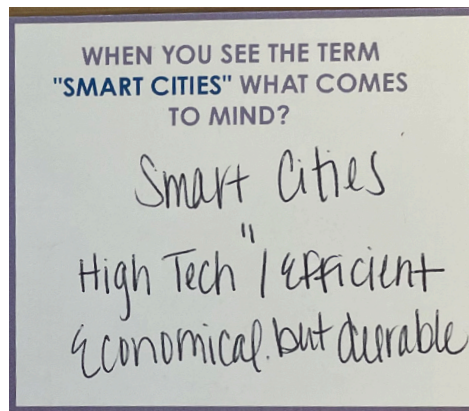 WHEN YOU SEE THE TERM
"SMART CITIES" WHAT COMES
TO MIND?
Smart Cities
"
High Tech / Efficient
Economical. but durable